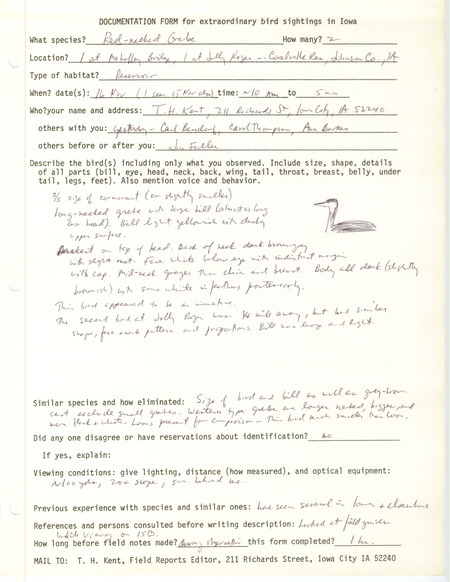 DOCUMENTATION FORM for extraordinary bird sightings in Iowa
What species? Red-necked Grebe How many? 2
Location? 1 at Mehaffey Bridge, 1 at Jolly Roger - Coralville Res, Johnson Co., IA
Type of habitat? Reservoir
When? date(s): 16 Nov (1 seen 15 Nov also) time: ~10 Am to 5 min
Who?your name and address: T.H. Kent, 211 Richards St, Iowa City, IA 52240
others with you: yesterday - Carl Bendorf, Carol Thompson, Ann Barker
others before or after you: Jim Fuller
Describe the bird(s) including only what you observed. Include size, shape, details
of all parts (bill, eye, head, neck, back, wing, tail, throat, breast, belly, under
tail, legs, feet). Also mention voice and behavior.
2/3 size of cormorant (or slightly smaller)
long-necked grebe with large bill (almost as long
as head). Bill light yellowish with dusky
upper surface.
Darkest on top of head. Back of neck dark
with slight. Face white below eye with indistinct margin
with cap. Mid-neck grayer than chin and breast. Body all dark (slightly
brownish) with some white in feathers posteriorly.
This bird appeared to be an immature.
The second bird at Jolly Roger was 1/4 mile away, but had similar
shape, face neck pattern and proportions. Bill was large and light.
Similar species and how eliminated: Size of bird and bill as well as grey-brown
cast exclude small grebes. Western type grebe are longer necked, bigger, and
more black & white. Loons present for comparison - this bird much smaller than loon.
Did any one disagree or have reservations about identification? No
If yes, explain:
Viewing conditions: give lighting, distance (how measured), and optical equipment:
~100 yds, 20x scope, sun behind me.
Previous experience with species and similar ones: have seen several in Iowa & elsewhere
References and persons consulted before writing description: looked at field guides
while viewing on 15th.
How long before field notes made? during observation this form completed? 1 hr.
MAIL TO: T. H. Kent, Field Reports Editor, 211 Richards Street, Iowa City IA 52240